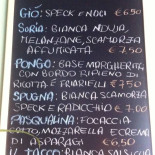 GIÒ: SPECK E NOCI €6.50
SORIA: BIANCA, NDUJA,
MELANZANE, SCAMORZA
AFFUMICATA €7.50
PONGO: BASE MARGHERITA
CON BORDO RIPIENO DI
RICOTTA E FRIARIELLI €7.50
SPUGNA: BIANCA SCAMORZA
SPECK E RADICCHIO €7.00
PASQUALINA: FOCACCIA
COTTO, MOZZARELLA E CREMA
DI ASPARAGI €6.50
IL TACCO: BIANCA SALSICCIA